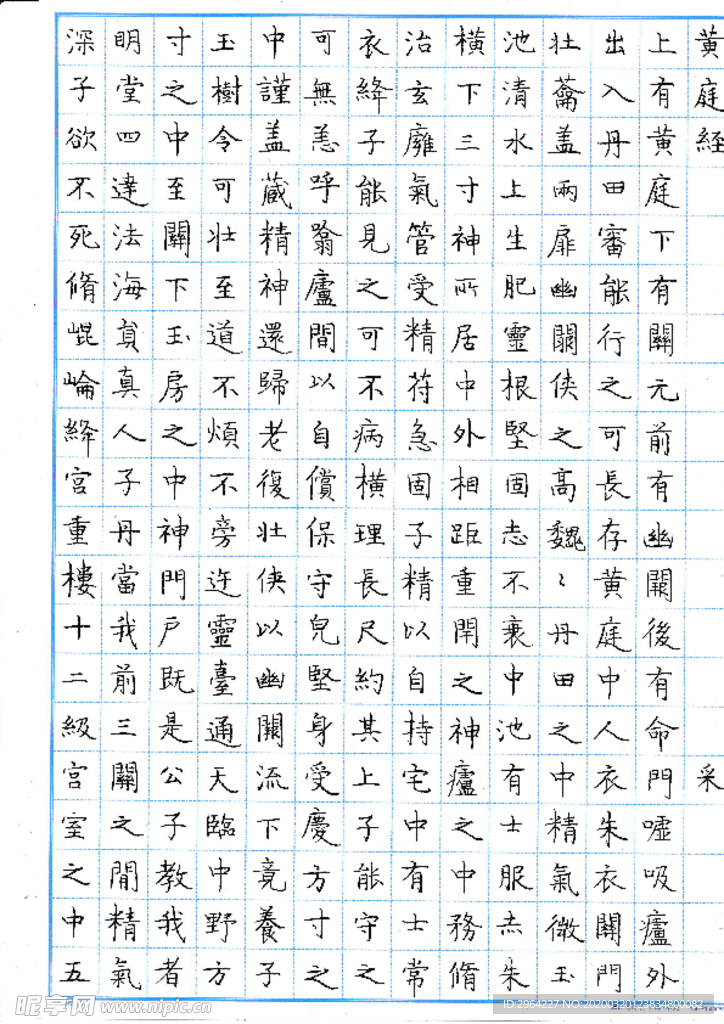 黄庭経采
上有黄庭下有關元前有幽關後有命門噓吸廬外
出入丹田審能行之可長存黄庭中人衣朱衣關門
壮蘥盖兩扉幽關侠之高魏〻丹田之中精氣微玉
池清水上生肥靈根堅固志不衰中池有士服赤朱
横下三寸神所居中外相距重閇之神廬之中務脩
治玄廱氣管受精苻急固子精以自持宅中有士常
衣絳子能見之可不病横理長尺約其上子能守之
可無恙呼翕廬間以自償保守皃堅身受慶方寸之
中謹盖蔵精神還歸老復壮侠以幽關流下竟養子
玉樹令可壮至道不煩不旁迕靈臺通天臨中野方
寸之中至關下玉房之中神門戶既是公子教我者
明堂四達法海員真人子丹當我前三關之間精氣
深子欲不死脩崐崘絳宫重樓十二級宫室之中五
昵享网 www.nipic.cn
ID:2954327 NO:20200320123834800082